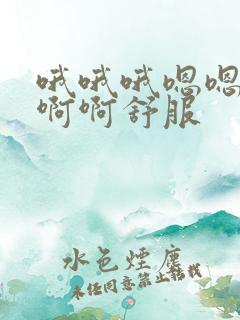 哦哦哦嗯嗯
啊啊舒服
水色煙塵
未经同意禁止转载